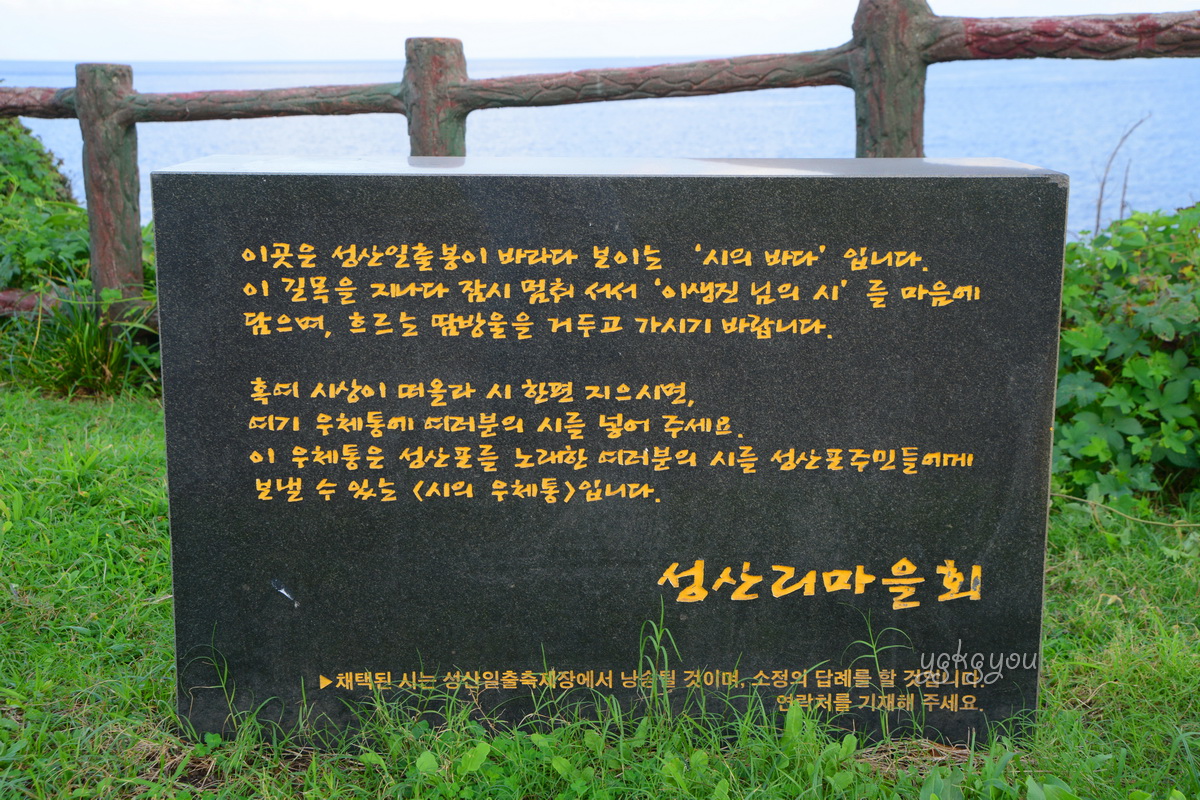 이곳은 성산일출봉이 바라다 보이는 '시의 바다' 입니다.
이 길목을 지나다 잠시 멈춰 서서 '이생진 님의 시' 를 마음에
담으며, 흐르는 땀방울을 거두고 가시기 바랍니다.
혹여 시상이 떠올라 시 한편 지으시면,
여기 우체통에 여러분의 시를 넣어 주세요.
이 우체통은 성산포를 노래한 여러분의 시를 성산포주민들에게
보낼 수 있는 <시의 우체통>입니다.
성산리마을회
ysksyou
▶채택된 시는 성산일출축제장에서 낭송될 것이며, 소정의 답례를 할 것입니다.
연락처를 기재해 주세요.